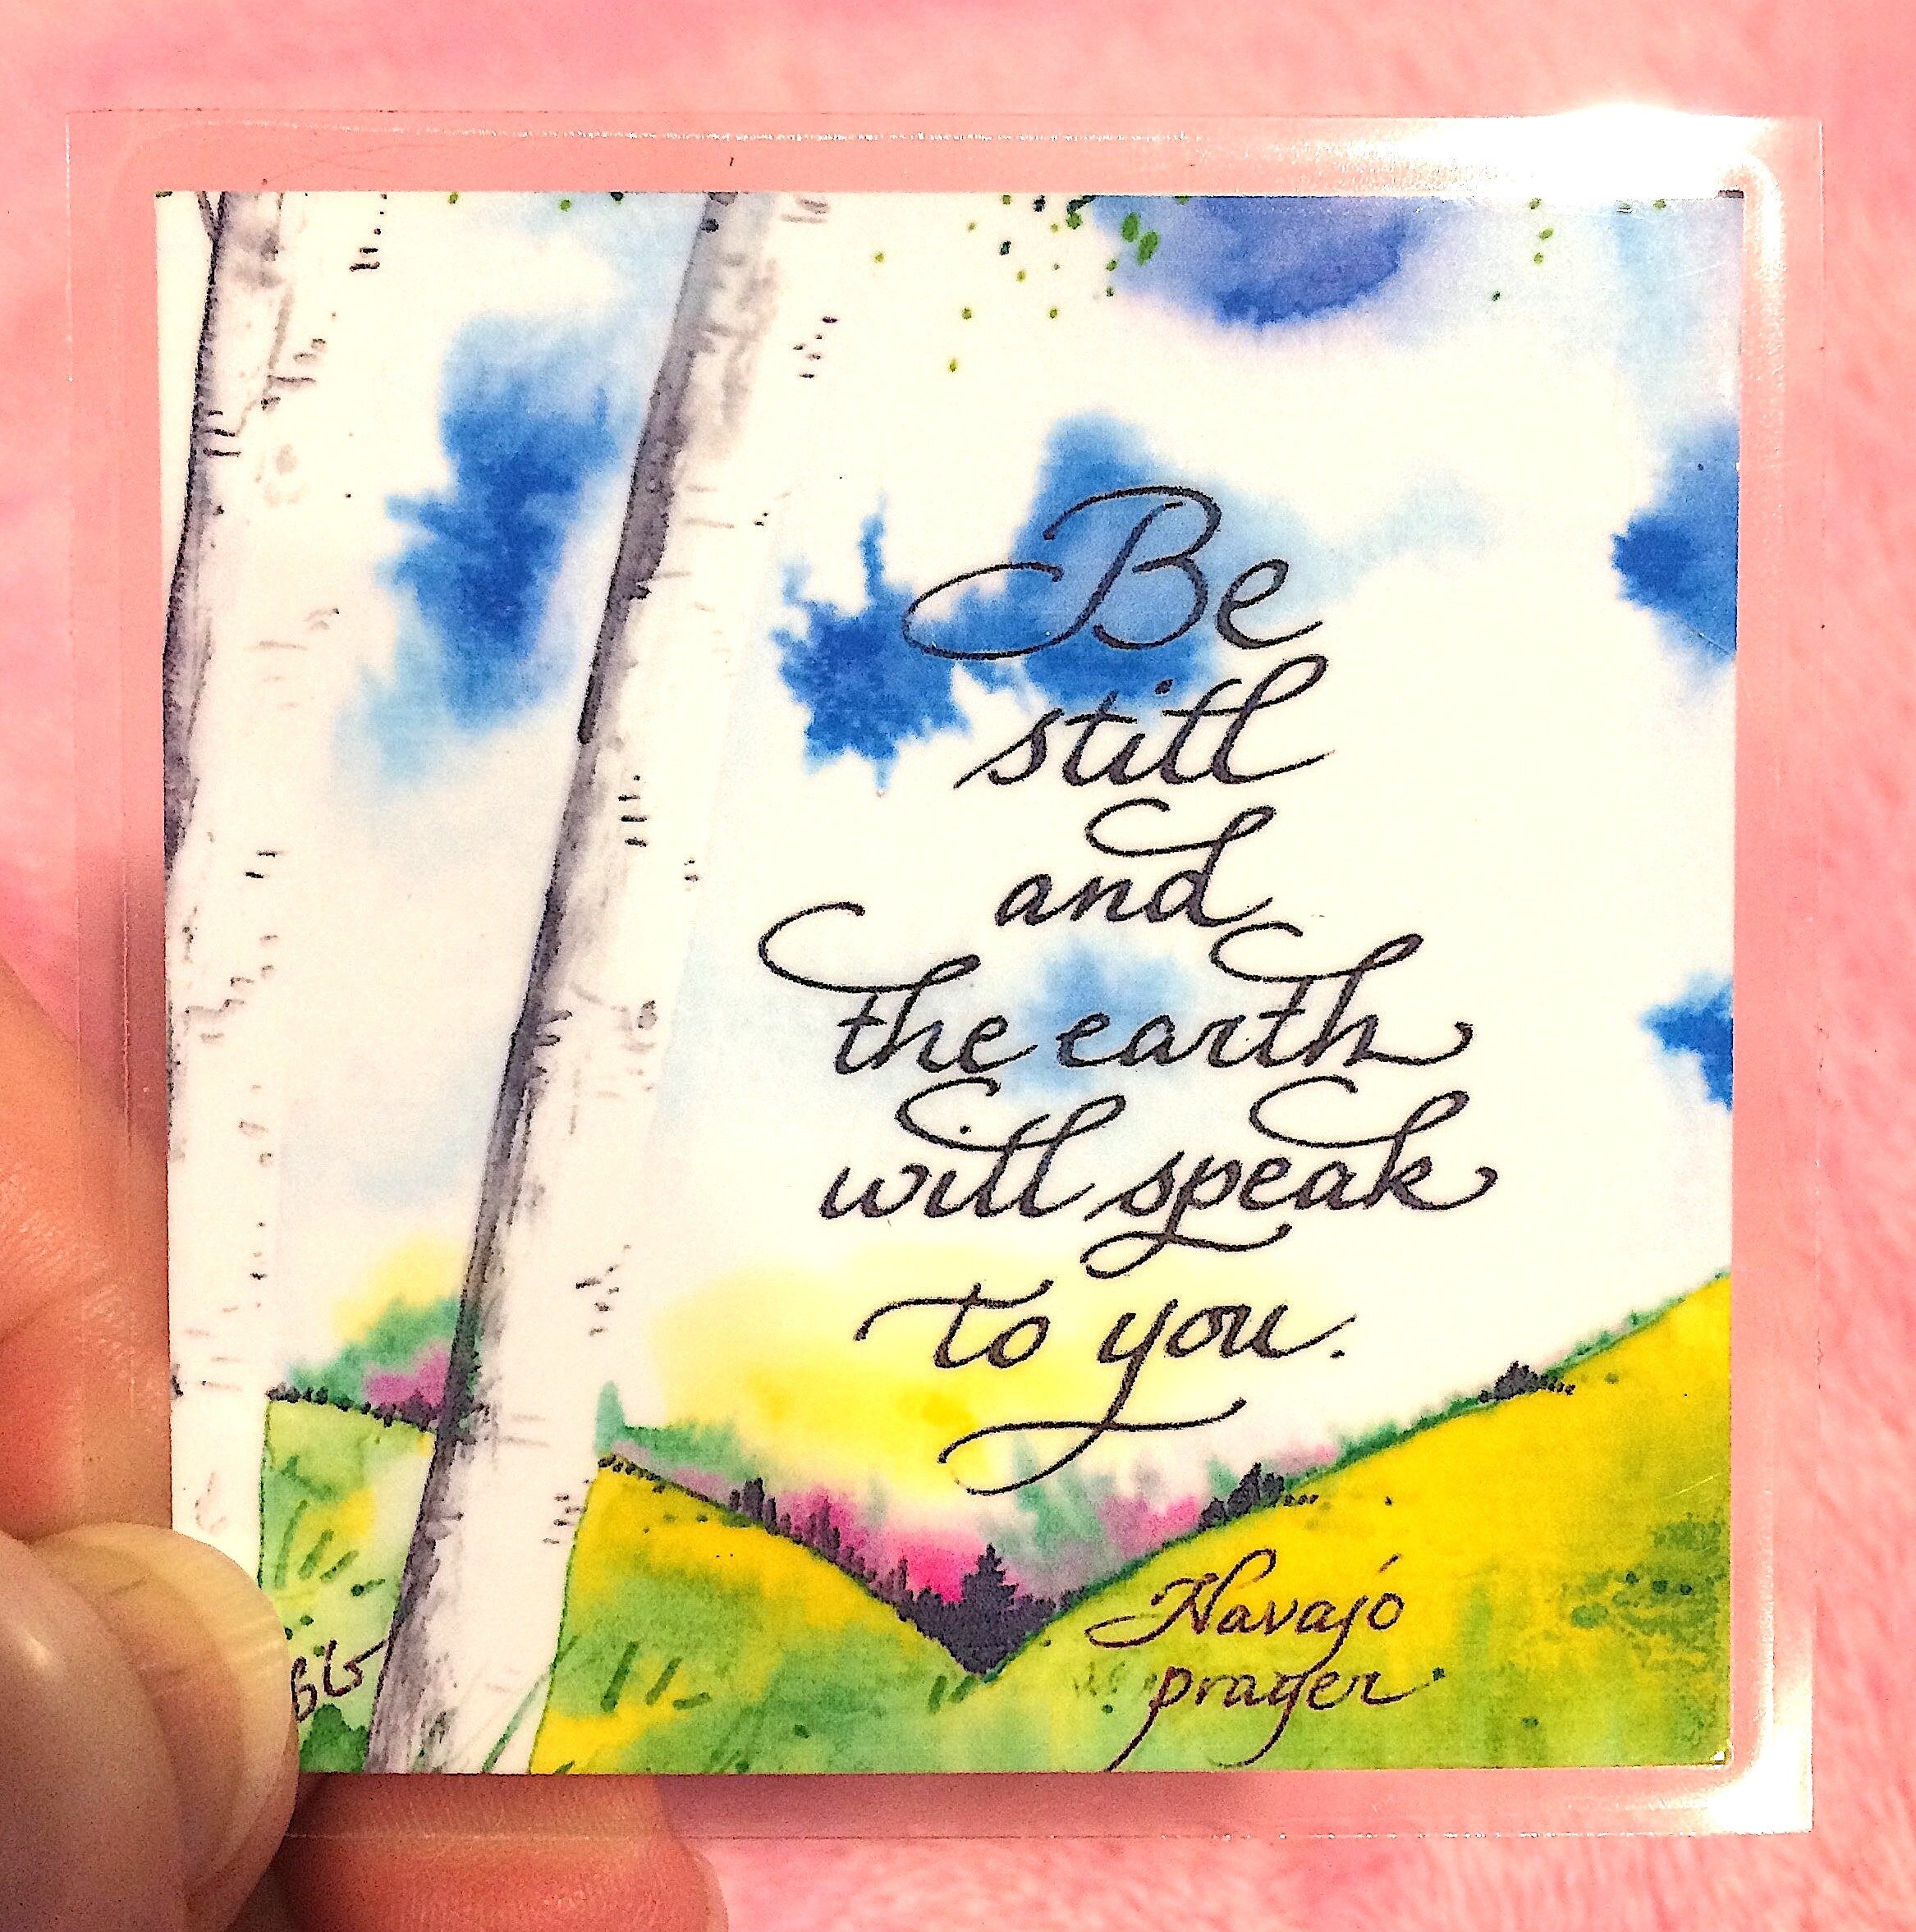 Be
still
and
the earth
will speak
to you.
Navajó
prayer